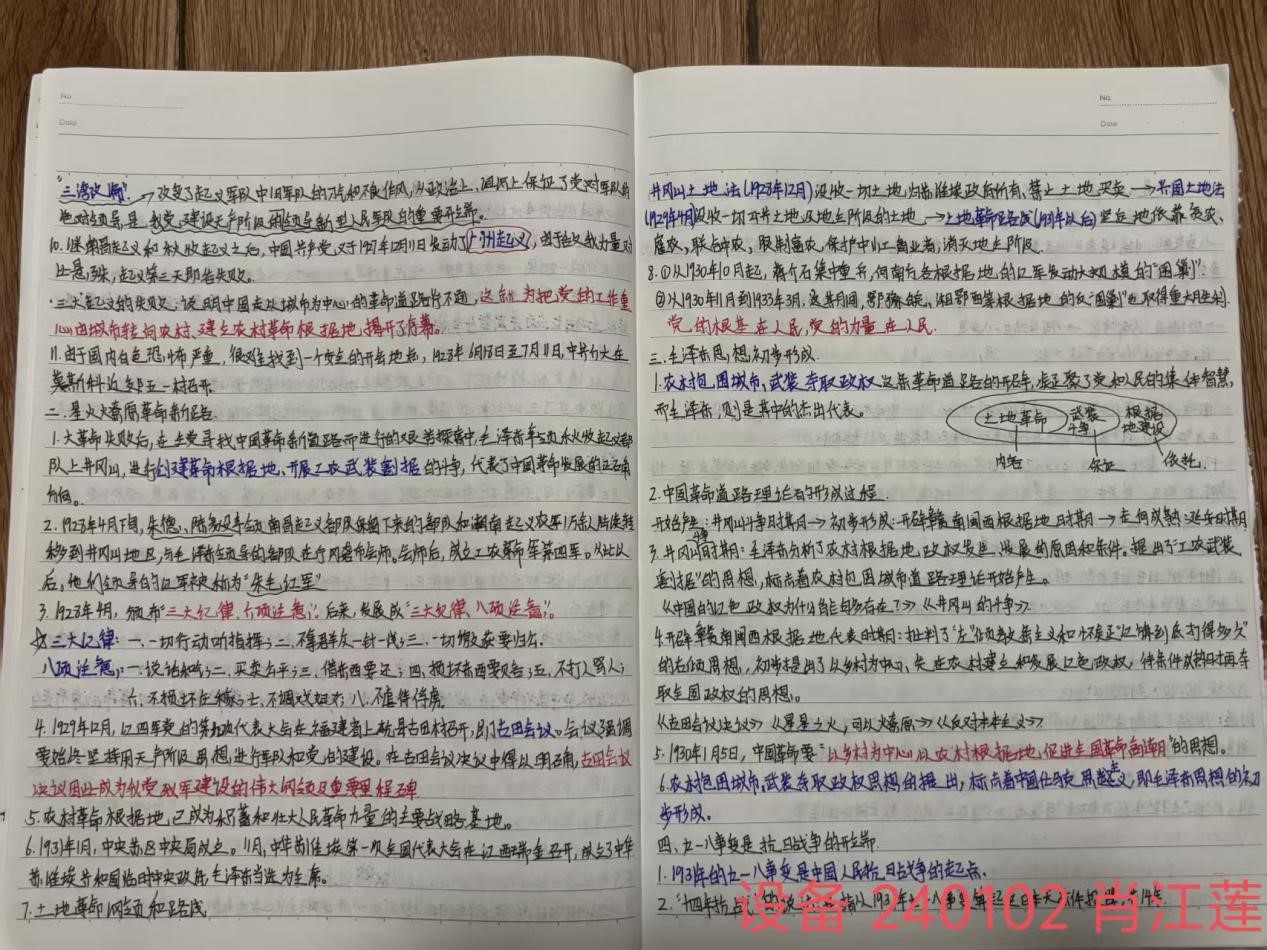 No
Date
"三湾改编".→改变了起义军队中旧军队的习气和不良作风,从政治上、组织上保证了党对军队的
绝对领导,是我党建设无产阶级领导新型人民军队的重要开端。
10.继南昌起义和秋收起义之后,中国共产党又于1927年12月11日发动了广州起义,由于敌我力量对
比悬殊,起义第三天即告失败。
·三大起义的失败:说明中国走以城市为中心的革命道路行不通,这就为把党的工作重
心由城市转向农村、建立农村革命根据地,揭开了序幕。
11.由于国内白色恐怖严重,很难找到一个安全的开会地点,1928年6月18日至7月11日,中共六大在
莫斯科近郊五一村召开.
二.星火燎原革命新道路.
1.大革命失败后,在全党寻找中国革命新道路所进行的艰苦探索中,毛泽东率领秋收起义部
队上井冈山,进行创建革命根据地、开展工农武装割据的斗争,代表了中国革命发展的正确
方向。
2.1928年4月下旬,朱德、陈毅率领南昌起义部队保留下来的部队和湘南起义农军1万余人陆续转
移到井冈山地区,与毛泽东领导的部队在宁冈砻市会师。会师后,成立工农革命军第四军。从此以
后,他们领导的红军被称为"朱毛红军"
3.1928年4月,颁布"三大纪律、六项注意",后来,发展成"三大纪律、八项注意"。
☆三大纪律:一、一切行动听指挥;二、不拿群众一针一线;三、一切缴获要归公.
八项注意:一、说话和气;二、买卖公平;三、借东西要还;四、损坏东西要赔;五、不打人骂人;
六、不损坏庄稼;七、不调戏妇女;八、不虐待俘虏.
4.1929年12月,红四军党的第九次代表大会在福建省上杭县古田村召开,即古田会议。会议强调
要始终坚持用无产阶级思想进行军队和党的建设。在古田会议决议中得以明确,古田会议
决议因此成为我党我军建设的伟大纲领及重要里程碑
5.农村革命根据地,已成为积蓄和壮大人民革命力量的主要战略基地。
6.1931年1月,中央苏区中央局成立。11月,中华苏维埃第一次全国代表大会在江西瑞金召开,成立了中华
苏维埃共和国临时中央政府,毛泽东当选为主席。
7.土地革命纲领和路线
No.
Date
井冈山土地法(1928年12月)没收一切土地,归苏维埃政府所有、禁止土地买卖→兴国土地法
(1929年4月)没收一切公共土地及地主阶级的土地→土地革命路线(1931年以后)坚定地依靠贫农、
雇农,联合中农,限制富农,保护中小工商业者,消灭地主阶级.
8.①从1930年10月起,蒋介石集中重兵,向南方各根据地的红军发动大规模的"围剿".
②从1930年11月到1933年3月,这期间,鄂豫皖、湘鄂西等根据地的反"围剿"也取得重大胜利.
党的根基在人民,党的力量在人民.
三.毛泽东思想初步形成.
1.农村包围城市,武装夺取政权这条革命道路的开辟,凝聚了党和人民的集体智慧,
而毛泽东则是其中的杰出代表。
土地革命 武装斗争 根据地建设
内容 保证 依托
2.中国革命道路理论的形成过程
开始产生:井冈山斗争时期→初步形成:开辟赣南闽西根据地时期→走向成熟:延安时期
3.井冈山斗争时期:毛泽东分析了农村根据地政权发生、发展的原因和条件。提出了"工农武装
割据"的思想,标志着农村包围城市道路理论开始产生。
《中国的红色政权为什么能够存在?》《井冈山的斗争》
4.开辟赣南闽西根据地代表时期:批判了"左"倾教条主义和怀疑"红旗到底打得多久"
的右倾思想,初步提出了以乡村为中心,先在农村建立和发展红色政权,待条件成熟时再夺
取全国政权的思想。
《古田会议决议》《星星之火,可以燎原》《反对本本主义》
5.1930年1月5日,中国革命要"以乡村为中心以农村根据地,促进全国革命高潮"的思想。
6.农村包围城市,武装夺取政权思想的提出,标志着中国化马克思主义,即毛泽东思想的初
步形成。
四.九一八事变是抗日战争的开端
1.1931年的九一八事变是中国人民抗日战争的起点.
2."十四年抗战"的说法,是指从1931年九一八事变算起至日本无条件投降,共14年.
设备 240102 肖江莲